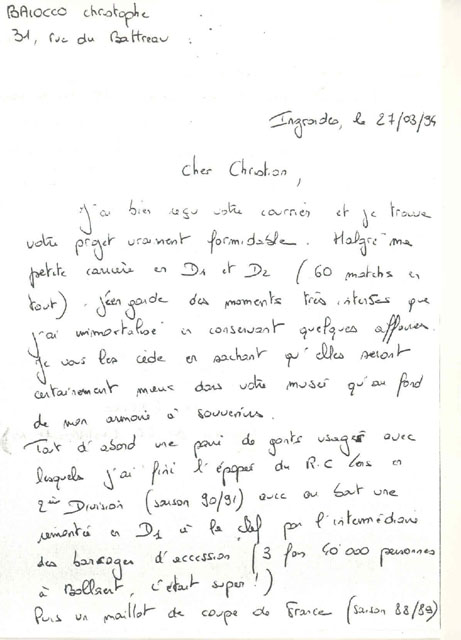 BAIOCCO christophe
31, rue du Battreau
Ingrandes, le 27/03/94
Cher Christian,
J'ai bien reçu votre courrier et je trouve
votre projet vraiment formidable. Malgré ma
petite carrière en D1 et D2 (60 matchs en
tout). j'en garde des moments très intenses que
j'ai immortalisé en conservant quelques affaires.
Je vous les cède en sachant qu'elles seront
certainement mieux dans votre musée qu'au fond
de mon armoire à souvenirs.
Tout d'abord une paire de gants usagés avec
lesquels j'ai fini l'épopée du R.C Lens en
2ème Division (saison 90/91) avec au bout une
remontée en D1 à la clef par l'intermédiaire
des barrages d'accession (3 fois 40'000 personnes
à Bollaert, c'était super!)
Puis un maillot de coupe de France (saison 88/89)